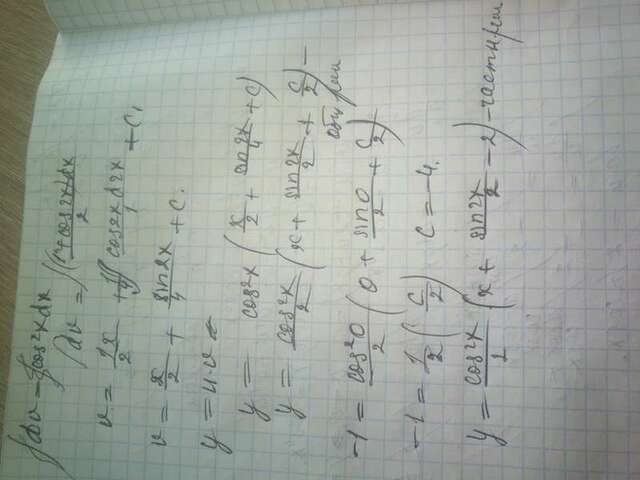 ∫dv = ∫cos²x dx
∫dv = ∫(1+cos2x)dx/2
v = 1x/2 + 1/4 ∫ cos2x d2x/1 + C,
v = x/2 + sin2x/4 + C.
y = u·v
y = cos²x (x/2 + sin2x/4 + C)
y = cos²x/2 (x + sin2x/2 + C/2) –
общ реш
-1 = cos²0/2 (0 + sin0/2 + C/2)
-1 = 1/2 (C/2) C = -4.
y = cos²x/1 (x + sin2x/2 - 2) – частн реш